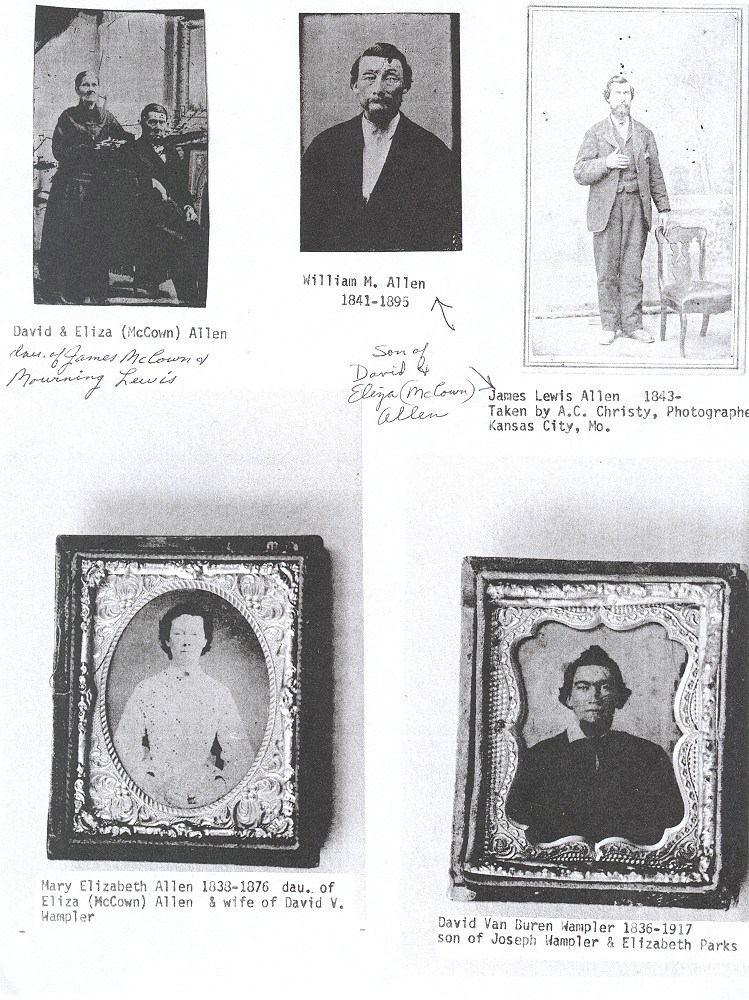 David & Eliza (McCown) Allen
dau. of James McCown &
Mourning Lewis
William M. Allen
1841-1895
Son of
David &
Eliza (McCown)
Allen
James Lewis Allen 1843-
Taken by A.C. Christy, Photographe
Kansas City, Mo.
Mary Elizabeth Allen 1838-1876 dau. of
Eliza (McCown) Allen & wife of David V.
Wampler
David Van Buren Wampler 1836-1917
son of Joseph Wampler & Elizabeth Parks